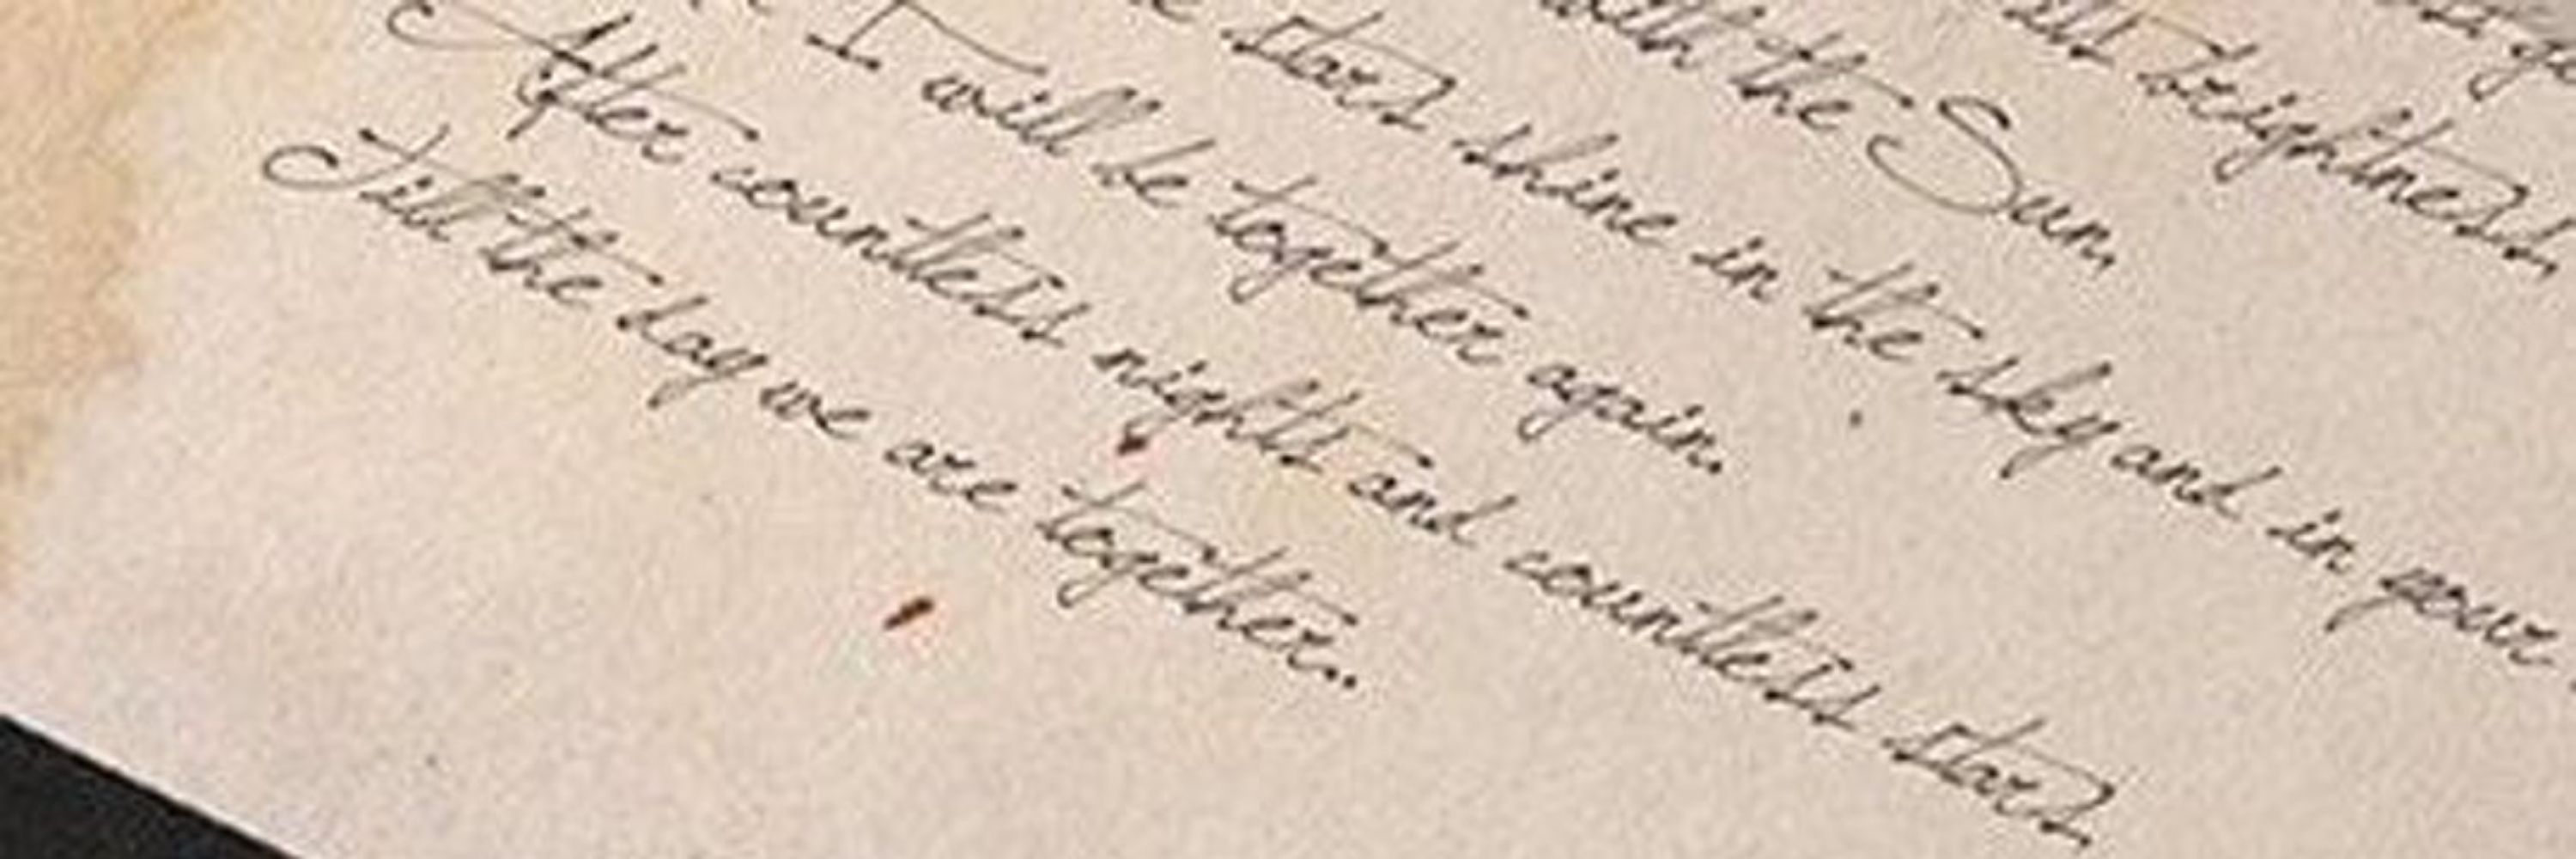 brightness,
with the Sun,
stars shine in the sky and in your
I will be together again.
After countless nights and countless stars,
Till the day we are together..